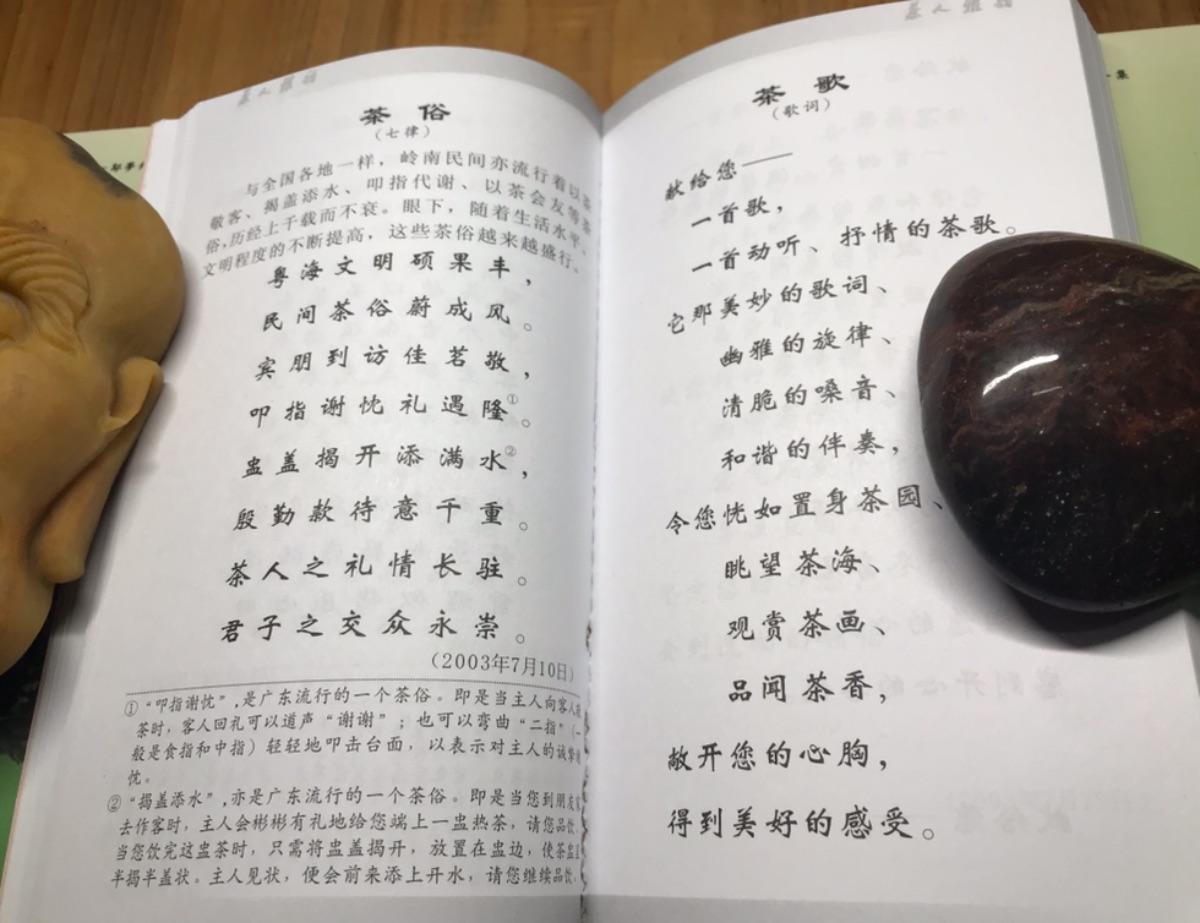 茶人雅韵
茶俗
(七律)
与全国各地一样，岭南民间亦流行着以茶
敬客、揭盖添水、叩指代谢、以茶会友等茶
俗,历经上千载而不衰。眼下，随着生活水平、
文明程度的不断提高，这些茶俗越来越盛行。
粤海文明硕果丰，
民间茶俗蔚成风。
宾朋到访佳茗敬，
叩指谢忱礼遇隆①。
盅盖揭开添满水②，
殷勤款待意千重。
茶人之礼情长驻。
君子之交众永崇。
(2003年7月10日)
①“叩指谢忱”,是广东流行的一个茶俗。即是当主人向客人
茶时，客人回礼可以道声“谢谢”；也可以弯曲“二指”(一
般是食指和中指）轻轻地叩击台面，以表示对主人的诚挚
忱。
②“揭盖添水”,亦是广东流行的一个茶俗。即是当您到朋友家
去作客时，主人会彬彬有礼地给您端上一盅热茶，请您品饮。
当您饮完这盅茶时，只需将盅盖揭开，放置在盅边，使茶盅呈
半揭半盖状。主人见状，便会前来添上开水，请您继续品饮。
茶人雅韵
茶歌
(歌词)
献给您——
一首歌，
一首动听、抒情的茶歌。
它那美妙的歌词、
幽雅的旋律、
清脆的嗓音、
和谐的伴奏，
令您恍如置身茶园、
眺望茶海、
观赏茶画、
品闻茶香，
敞开您的心胸，
得到美好的感受。
集